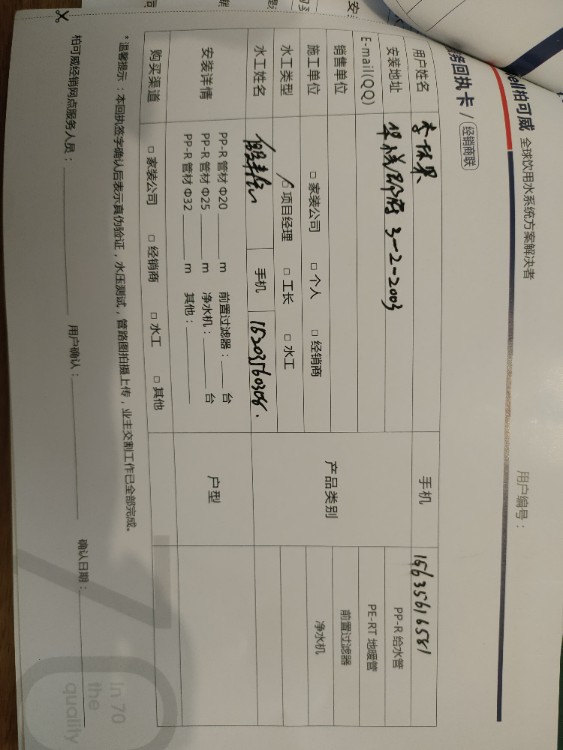 ell柏可威 全球饮用水系统方案解决者
用户编号：
务回执卡 / 经销商联
用户姓名
手机 15635616581
安装地址 3-2-2003
E-mail(QQ)
销售单位
施工单位 □ 家装公司 □ 个人 □ 经销商
水工类型 □ 项目经理 □ 工长 □ 水工
水工姓名 手机 15203560306.
安装详情
PP-R 管材 Φ20 ____ m 前置过滤器：____ 台
PP-R 管材 Φ25 ____ m 净水机：____ 台
PP-R 管材 Φ32 ____ m 其他：____
购买渠道 □ 家装公司 □ 经销商 □ 水工 □ 其他
产品类别
PP-R 给水管
PE-RT 地暖管
前置过滤器
净水机
户型
*温馨提示：本回执签字确认后表示真伪验证，水压测试，管路图拍摄上传，业主交割工作已全部完成。
柏可威经销网点服务人员：
用户确认：
确认日期：
in 70
the
quality